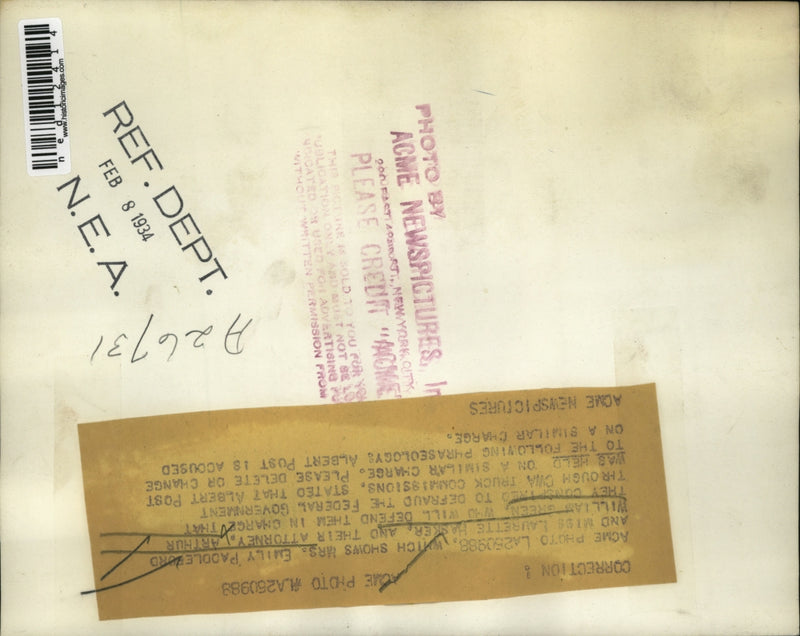 ned12414
www.historicimages.com
REF. DEPT.
FEB 8 1934
N. E. A.
A26731
PHOTO BY
ACME NEWSPICTURES, In
NEW YORK CITY
PLEASE CREDIT "ACME
THIS PICTURE IS SOLD TO YOU FOR YO
PUBLICATION ONLY AND MUST NOT BE LO
OR USED FOR ADVERTISING
WITHOUT WRITTEN PERMISSION FROM
CORRECTION: ACME PHOTO #LA260988
ACME PHOTO LA260988, WHICH SHOWS MRS. EMILY PADDLEFORD
AND MISS LAURETTE HASKER, AND THEIR ATTORNEY, ARTHUR
WILLIAM GREEN, WHO WILL DEFEND THEM IN CHARGE THAT
THEY CONSPIRED TO DEFRAUD THE FEDERAL GOVERNMENT
THROUGH CWA TRUCK COMMISSIONS. STATED THAT ALBERT POST
WAS HELD ON A SIMILAR CHARGE. PLEASE DELETE OR CHANGE
TO THE FOLLOWING PHRASEOLOGY: ALBERT POST IS ACCUSED
ON A SIMILAR CHARGE.
ACME NEWSPICTURES